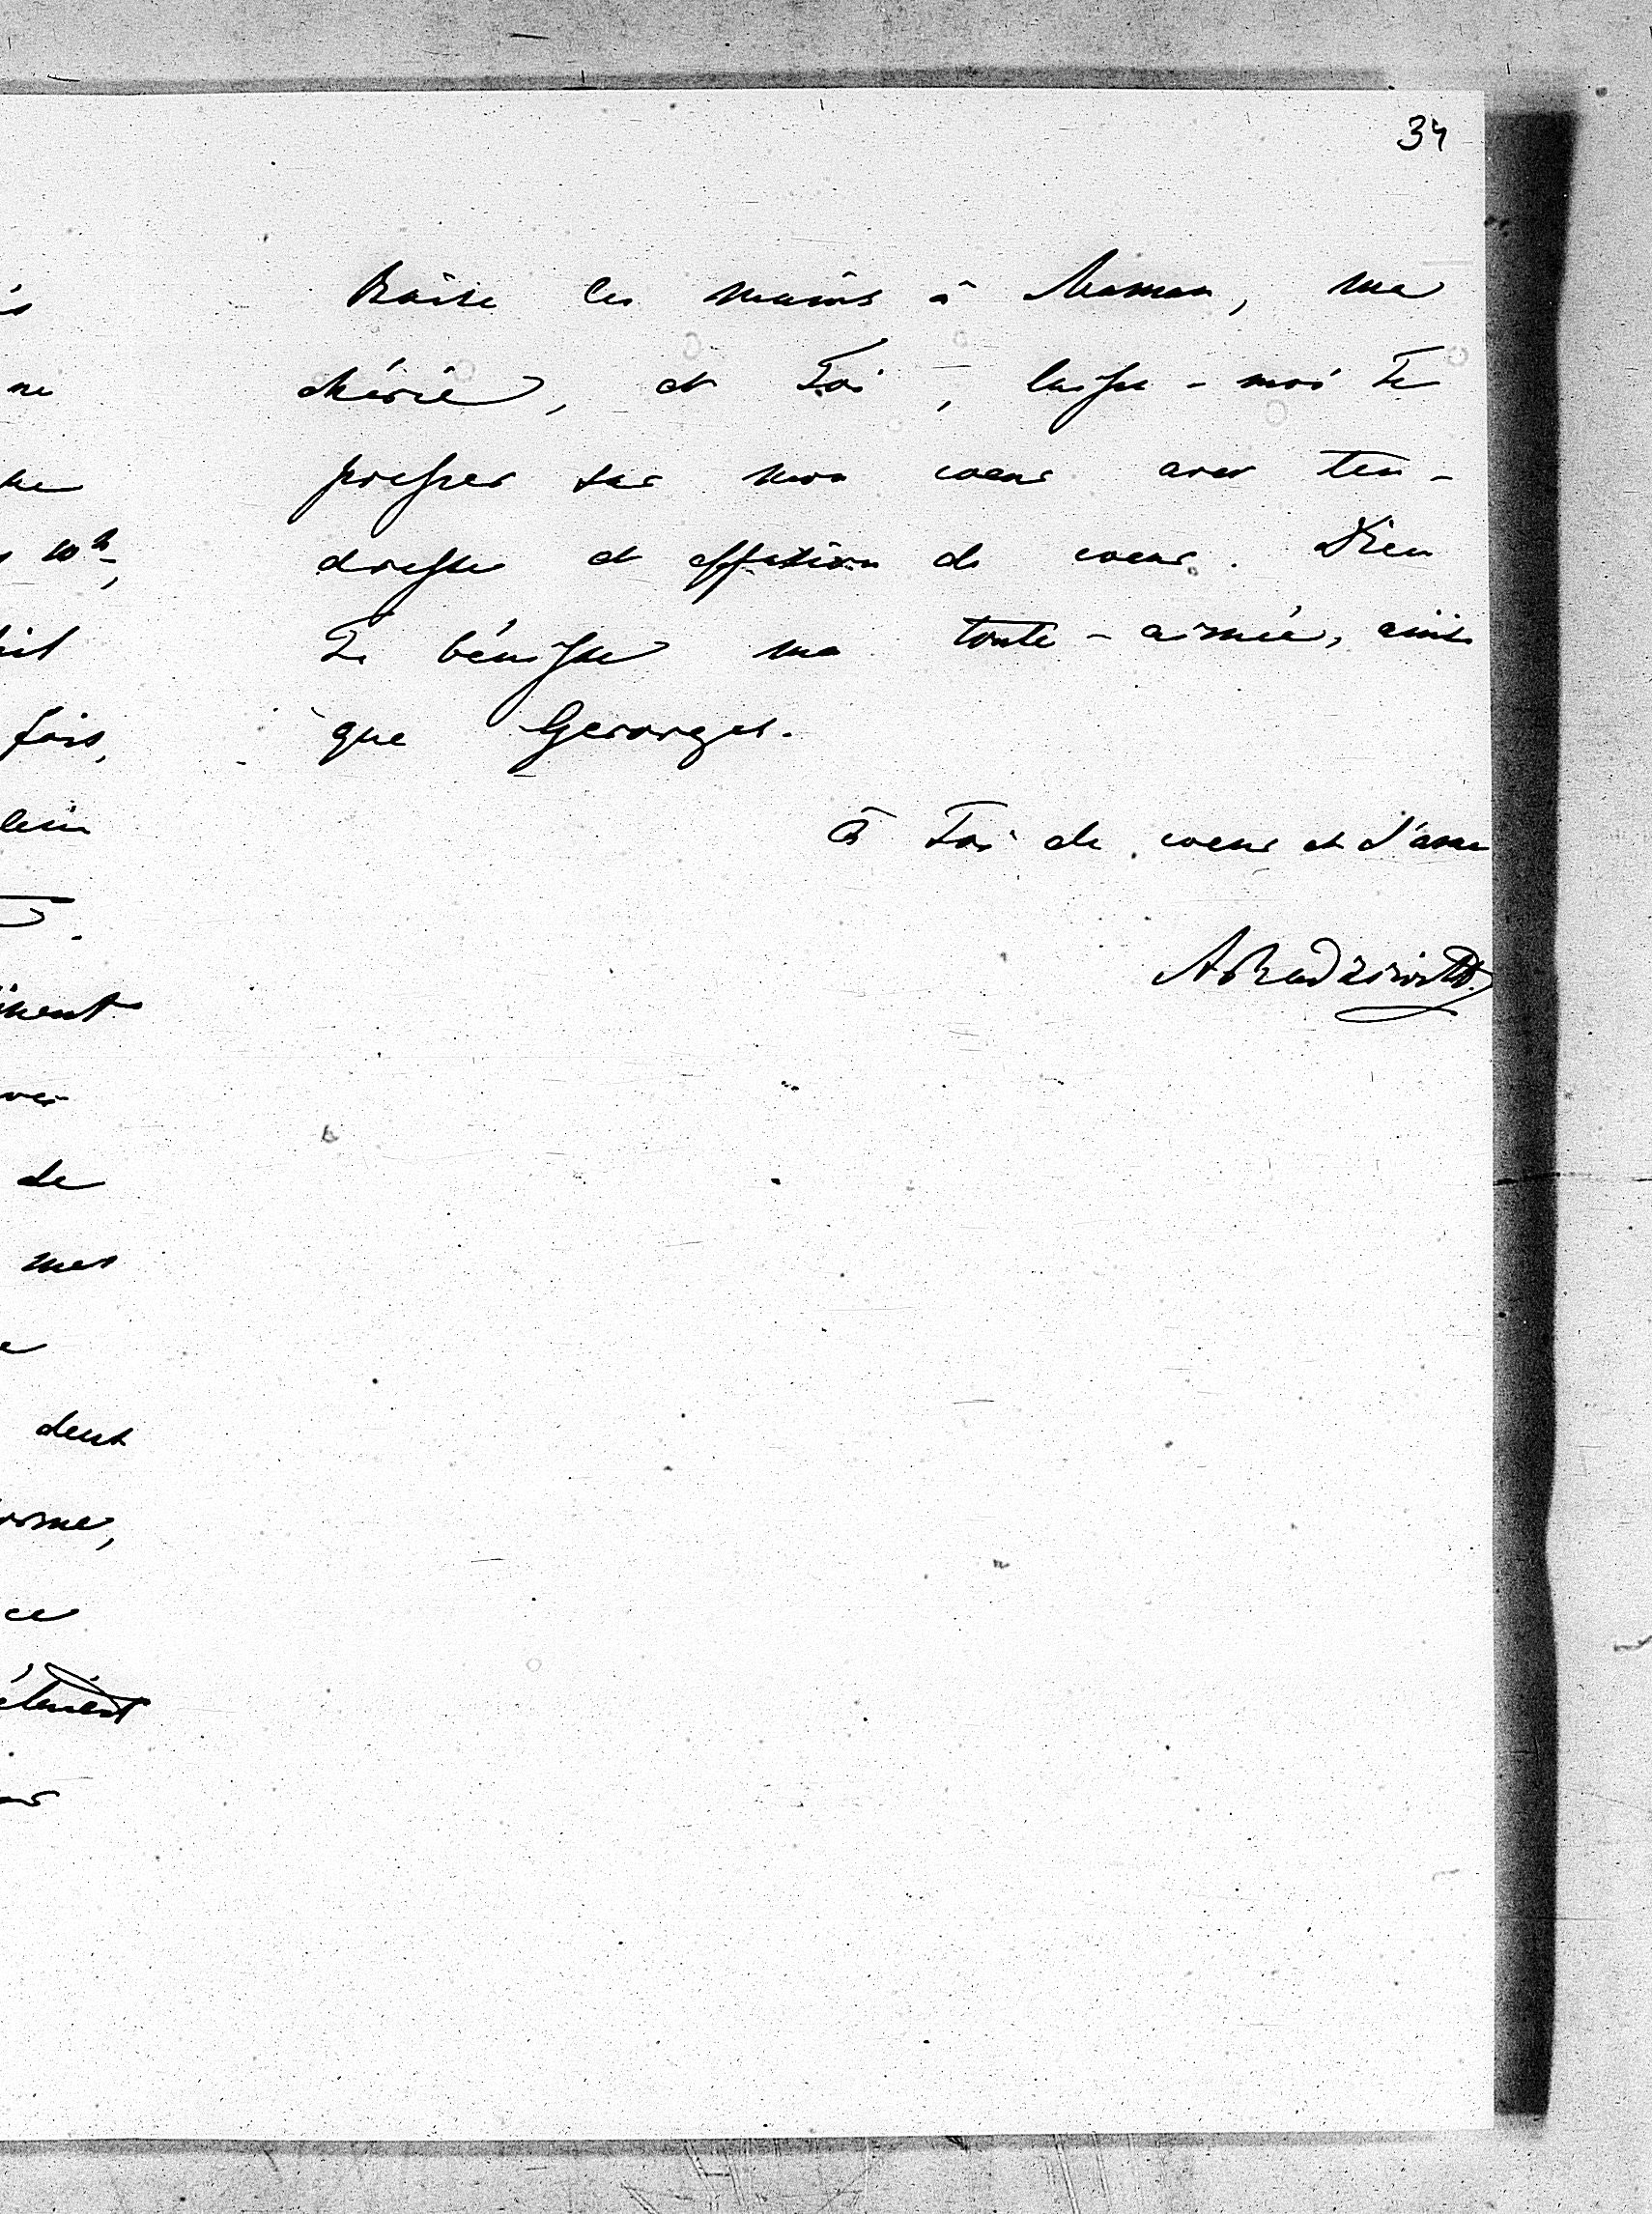 34
Baise les mains à Maman, ma
chérie, et Toi, laisse-moi Te
presser sur mon coeur avec ten-
dresse et effusion de coeur. Dieu
Te bénisse ma toute-aimée, ainsi
que Georges.
à Toi de coeur et d'âme
ARadziwill
ne
10h,
fois,
de
mes
dent
ce